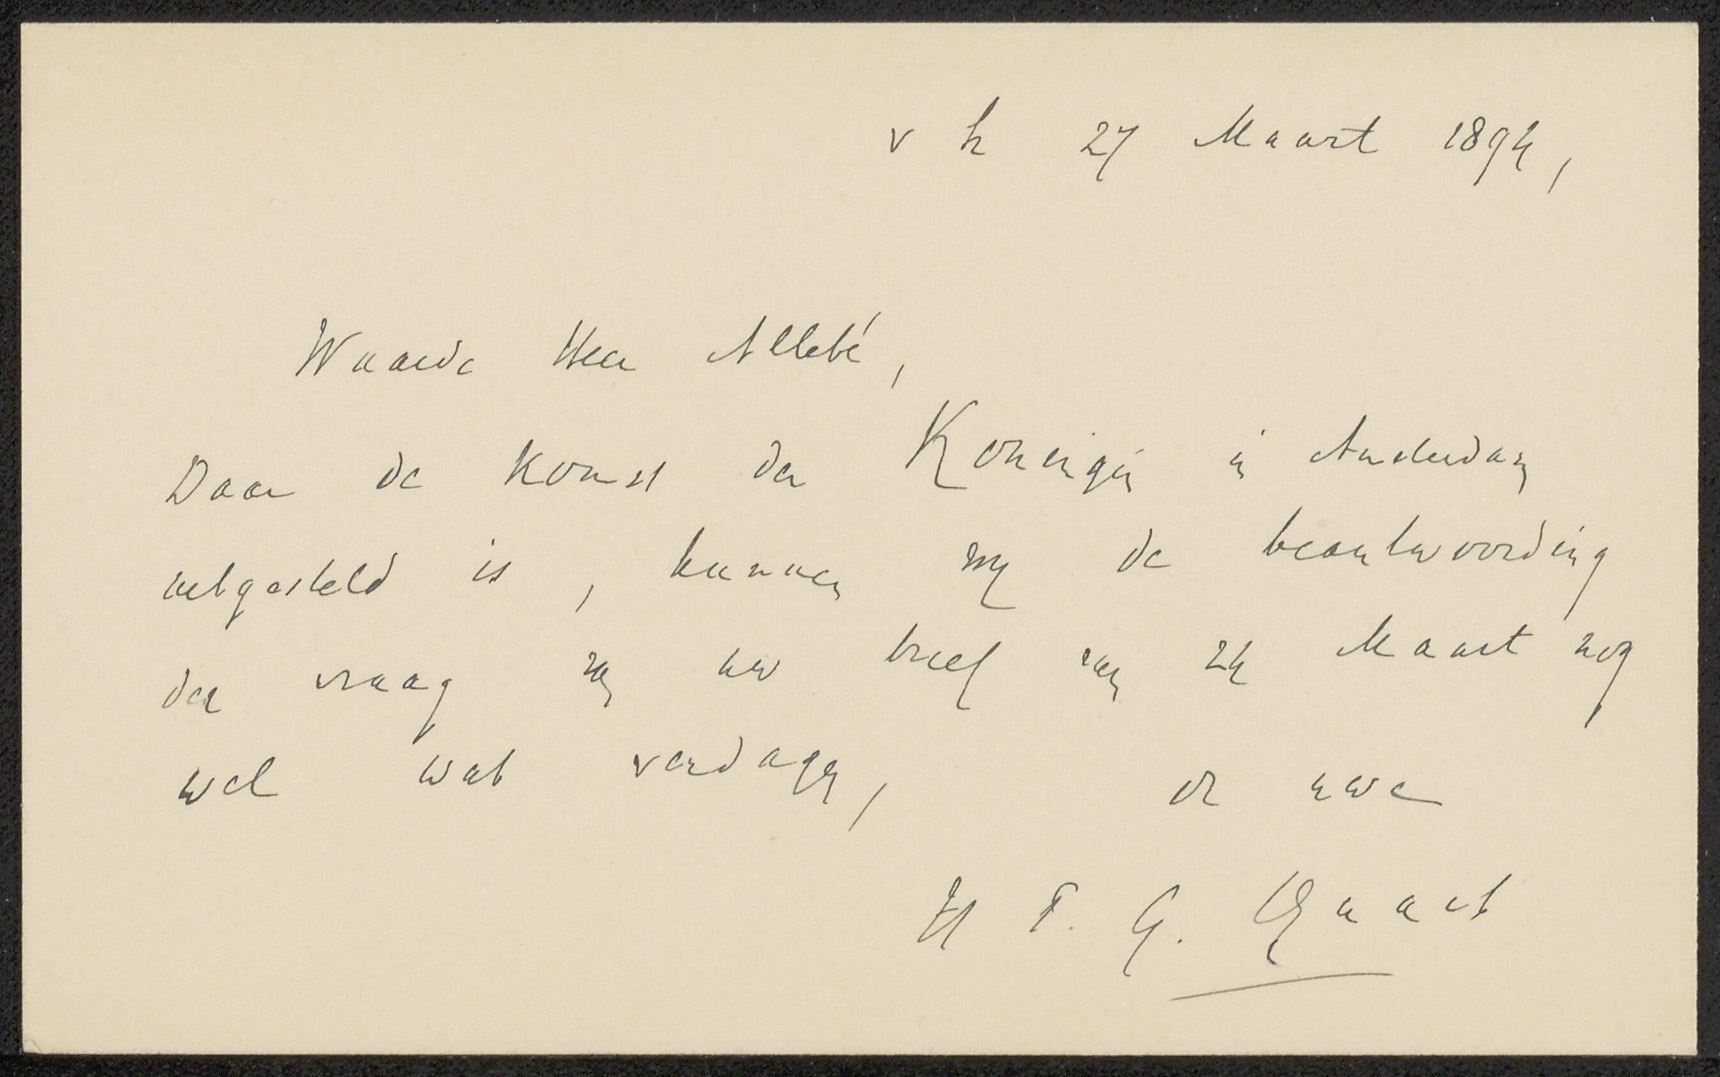 v h 27 Maart 1894,
Waarde Heer Allebé,
Daar de komst der Koningin in Amsterdam
uitgesteld is, kunnen wij de beantwoording
der vraag in uw brief van 24 Maart nog
wel wat verdagen,
de uwe
H F. G.